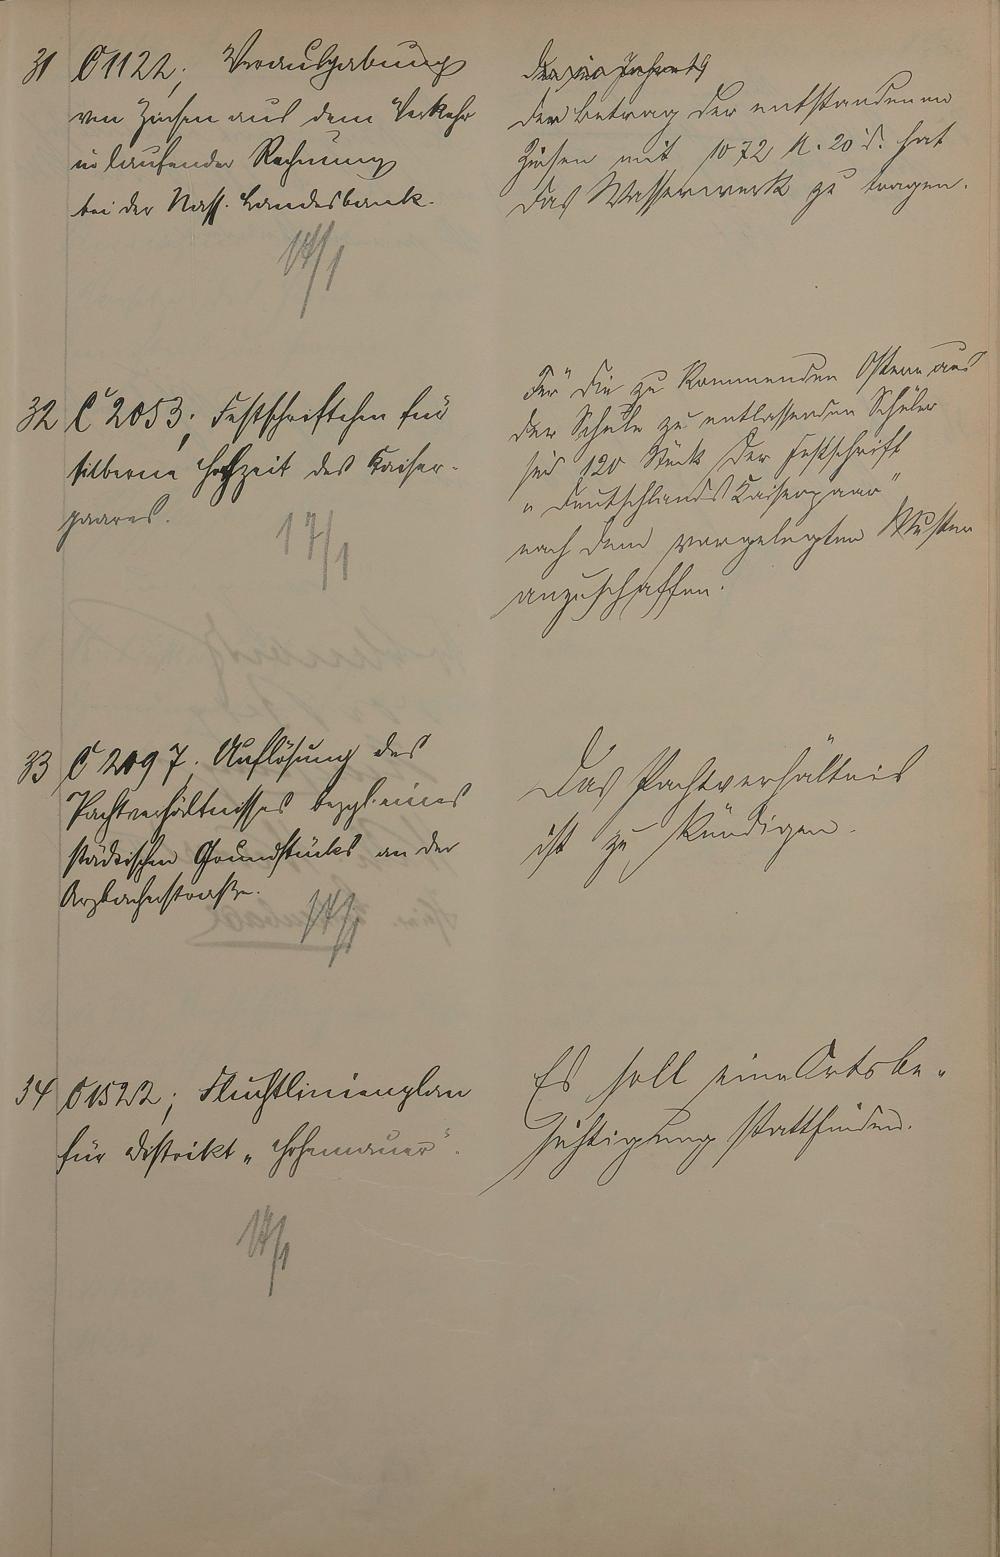 31 C 1122; Verausgabung
von Zinsen aus dem Verkehr
in laufender Rechnung
bei der Nass. Landesbank.
17/1
Die im Jahre 19
Den Betrag der entstandenen
Zinsen mit 1072 M. 20 d. hat
das Wasserwerk zu tragen.
32 C 2053; Festschriftchen für
silberne Hochzeit des Kaiser-
paares.
17/1
Für die zu kommenden Ostern aus
der Schule zu entlassenden Schüler
sind 120 Stück der Festschrift
"Deutschlands Kaiserpaar"
nach dem vorgelegten Muster
anzuschaffen.
33 C 2097. Auflösung des
Pachtverhältnisses bezgl. eines
städtischen Grundstücks an der
Arzbacherstraße.
17/1
Das Pachtverhältnis
ist zu kündigen.
34 C 1522; Fluchtlinienplan
für Distrikt „Hohemauer“.
17/1
Es soll eine Ortsbe-
sichtigung stattfinden.